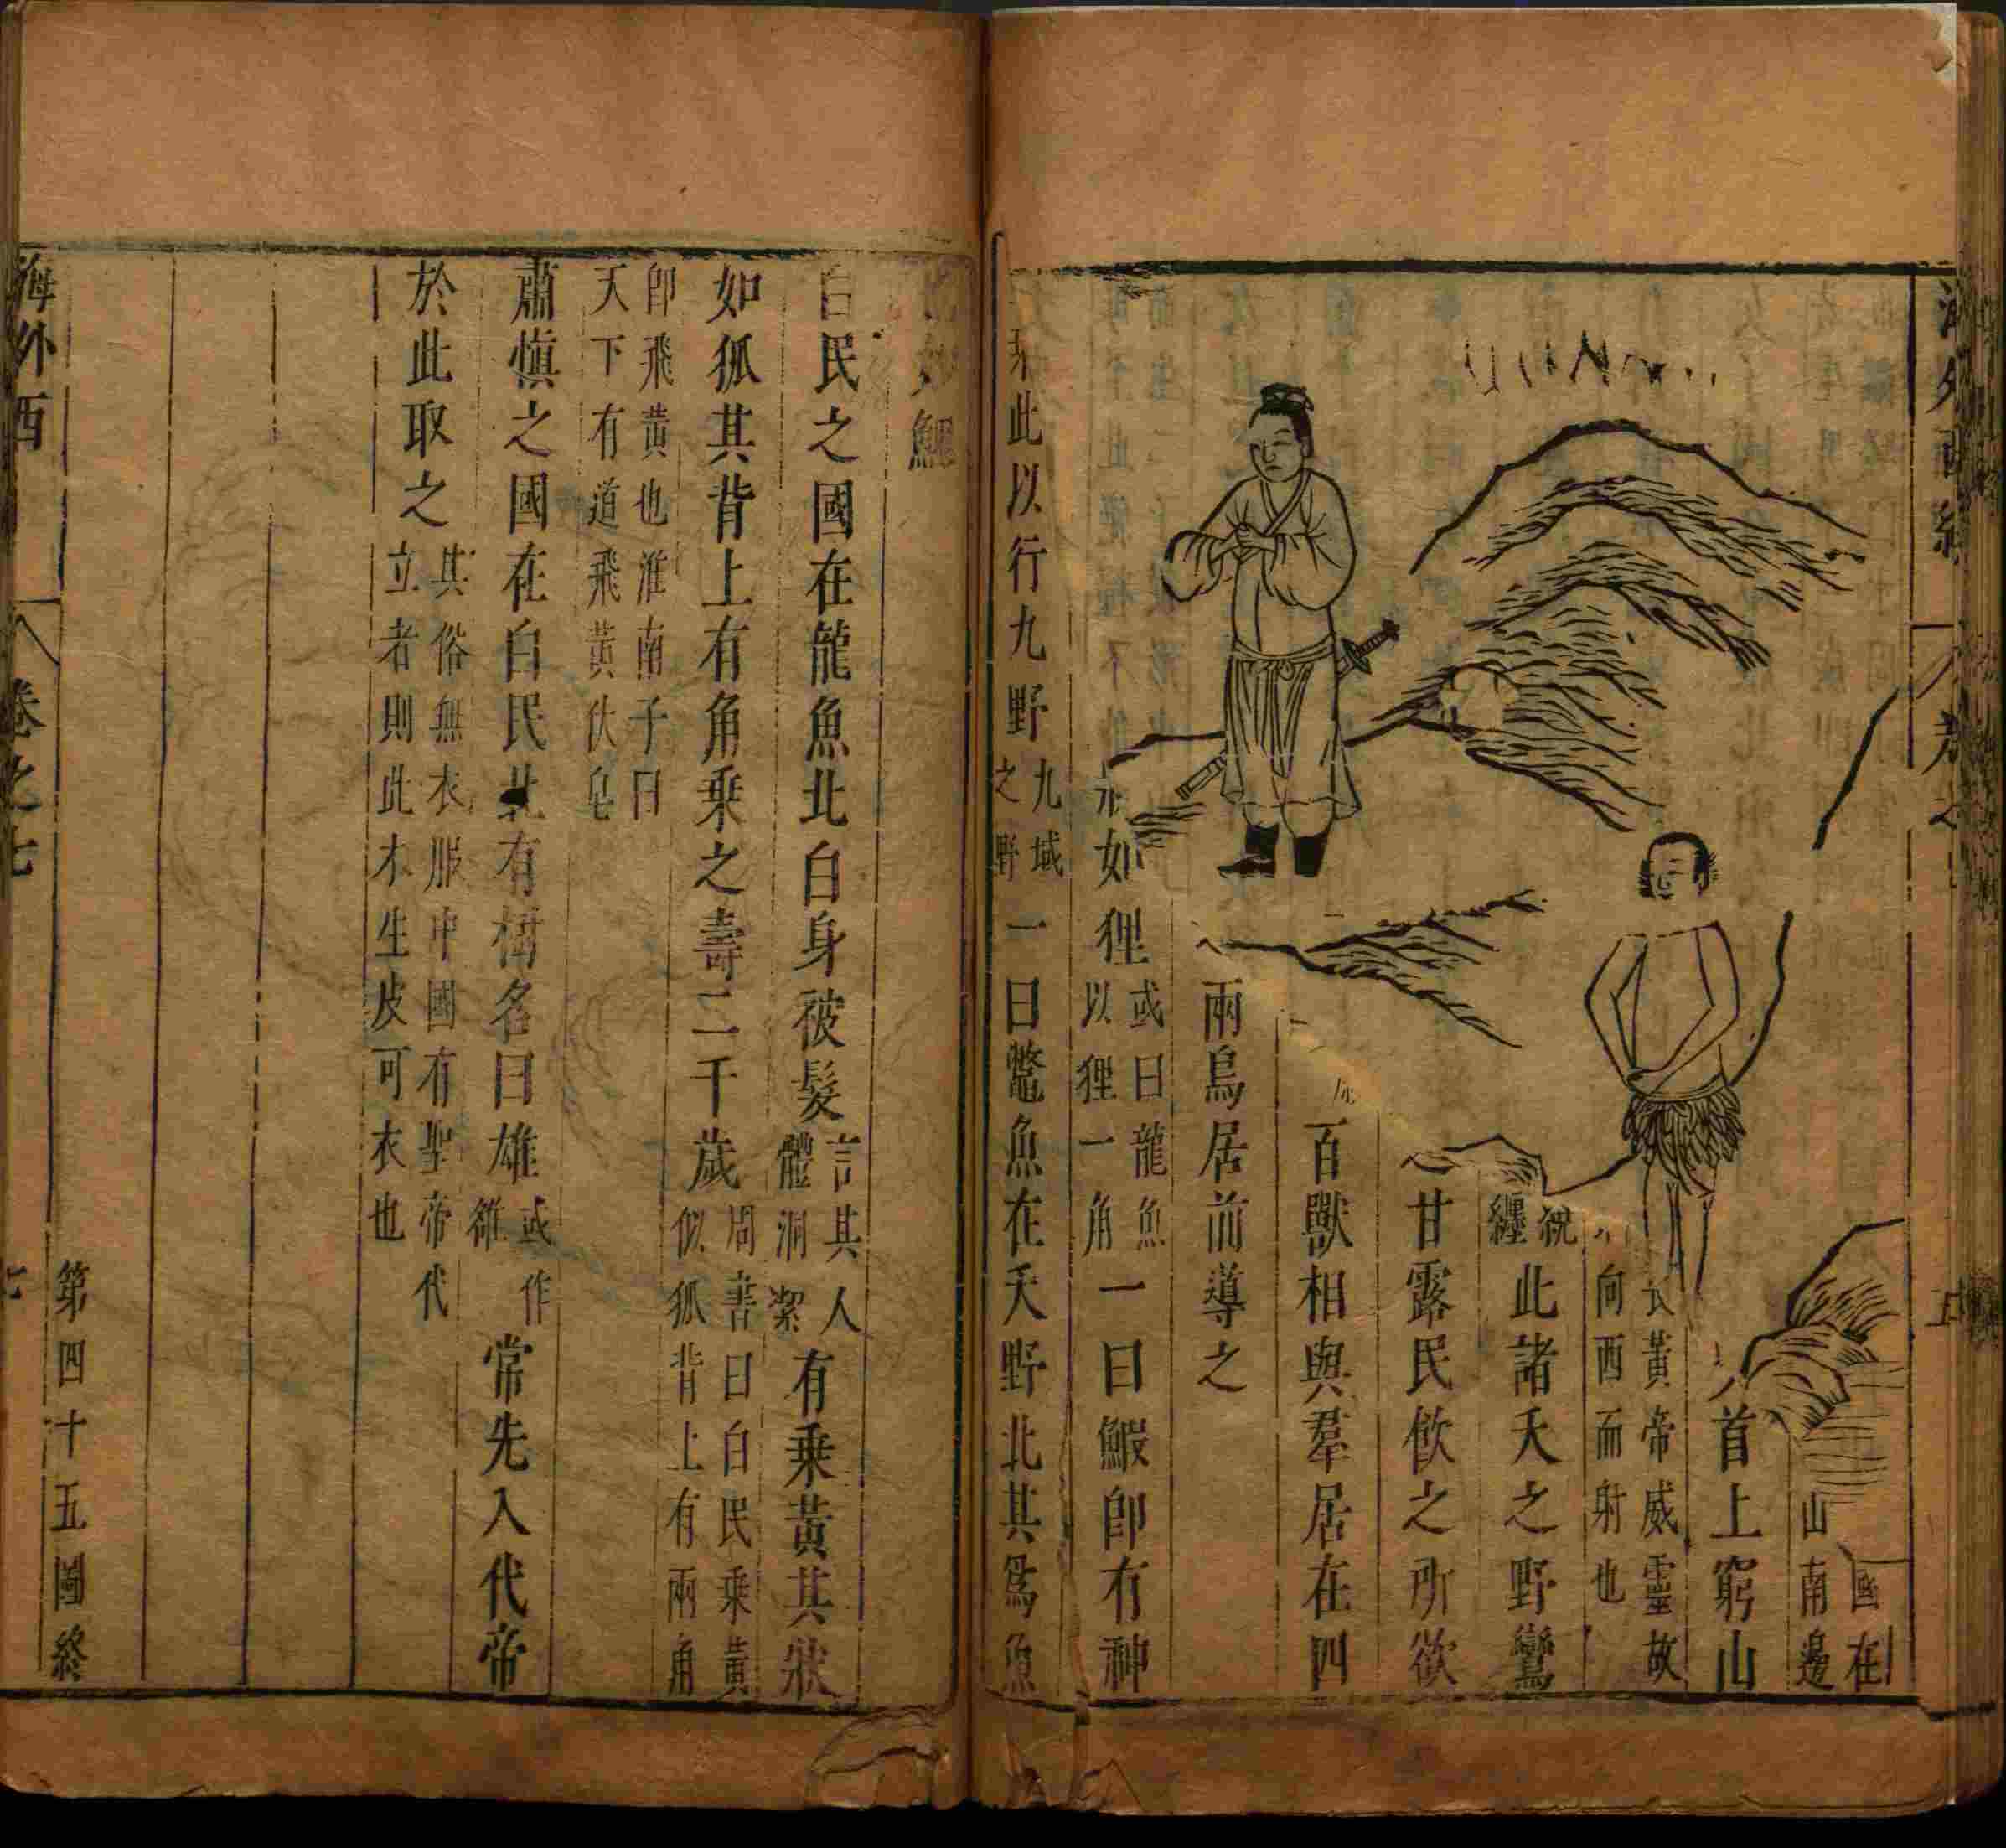 海外西經
卷之
五
國在
山南邊
首上窮山
黃帝威靈故
向西而射也
纏
此諸夭之野鸞
甘露民飲之所欲
百獸相與羣居在四
兩鳥居前導之
如狸或曰龍魚以狸一角一曰鰕即有神
此以行九野九域之野一曰鱉魚在夭野北其爲魚
如鯉
白民之國在龍魚北白身被髮言其人體洞潔有乗黃其狀
如狐其背上有角乗之壽二千歲周書曰白民乗黃似狐背上有兩角
即飛黃也淮南子曰天下有道飛黃伏皁
肅慎之國在白民北有樹名曰雄或作雒常先入代帝
於此取之其俗無衣服中國有聖帝代立者則此木生皮可衣也
第四十五圖終
海外西
卷之七
七